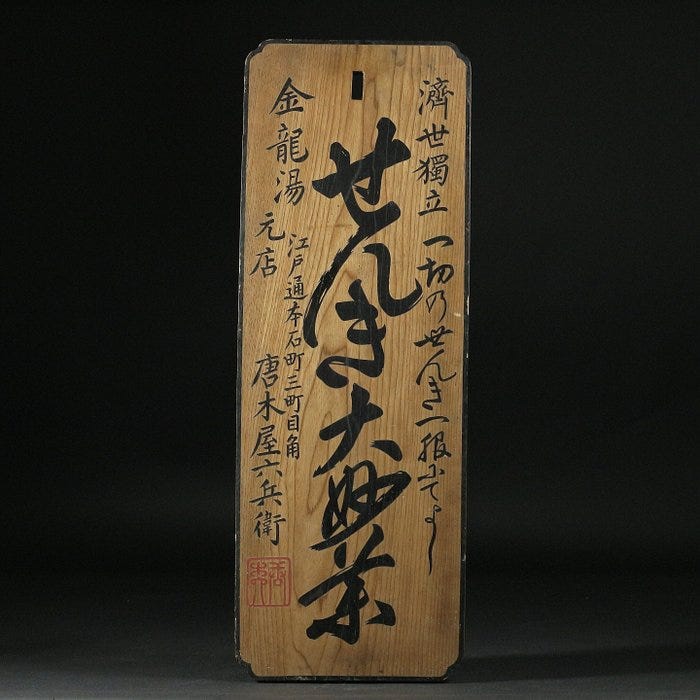 濟世獨立 一切のせんき一服にてよし
せんき大妙薬
江戸通本石町三町目角
金龍湯 元店 唐木屋六兵衛